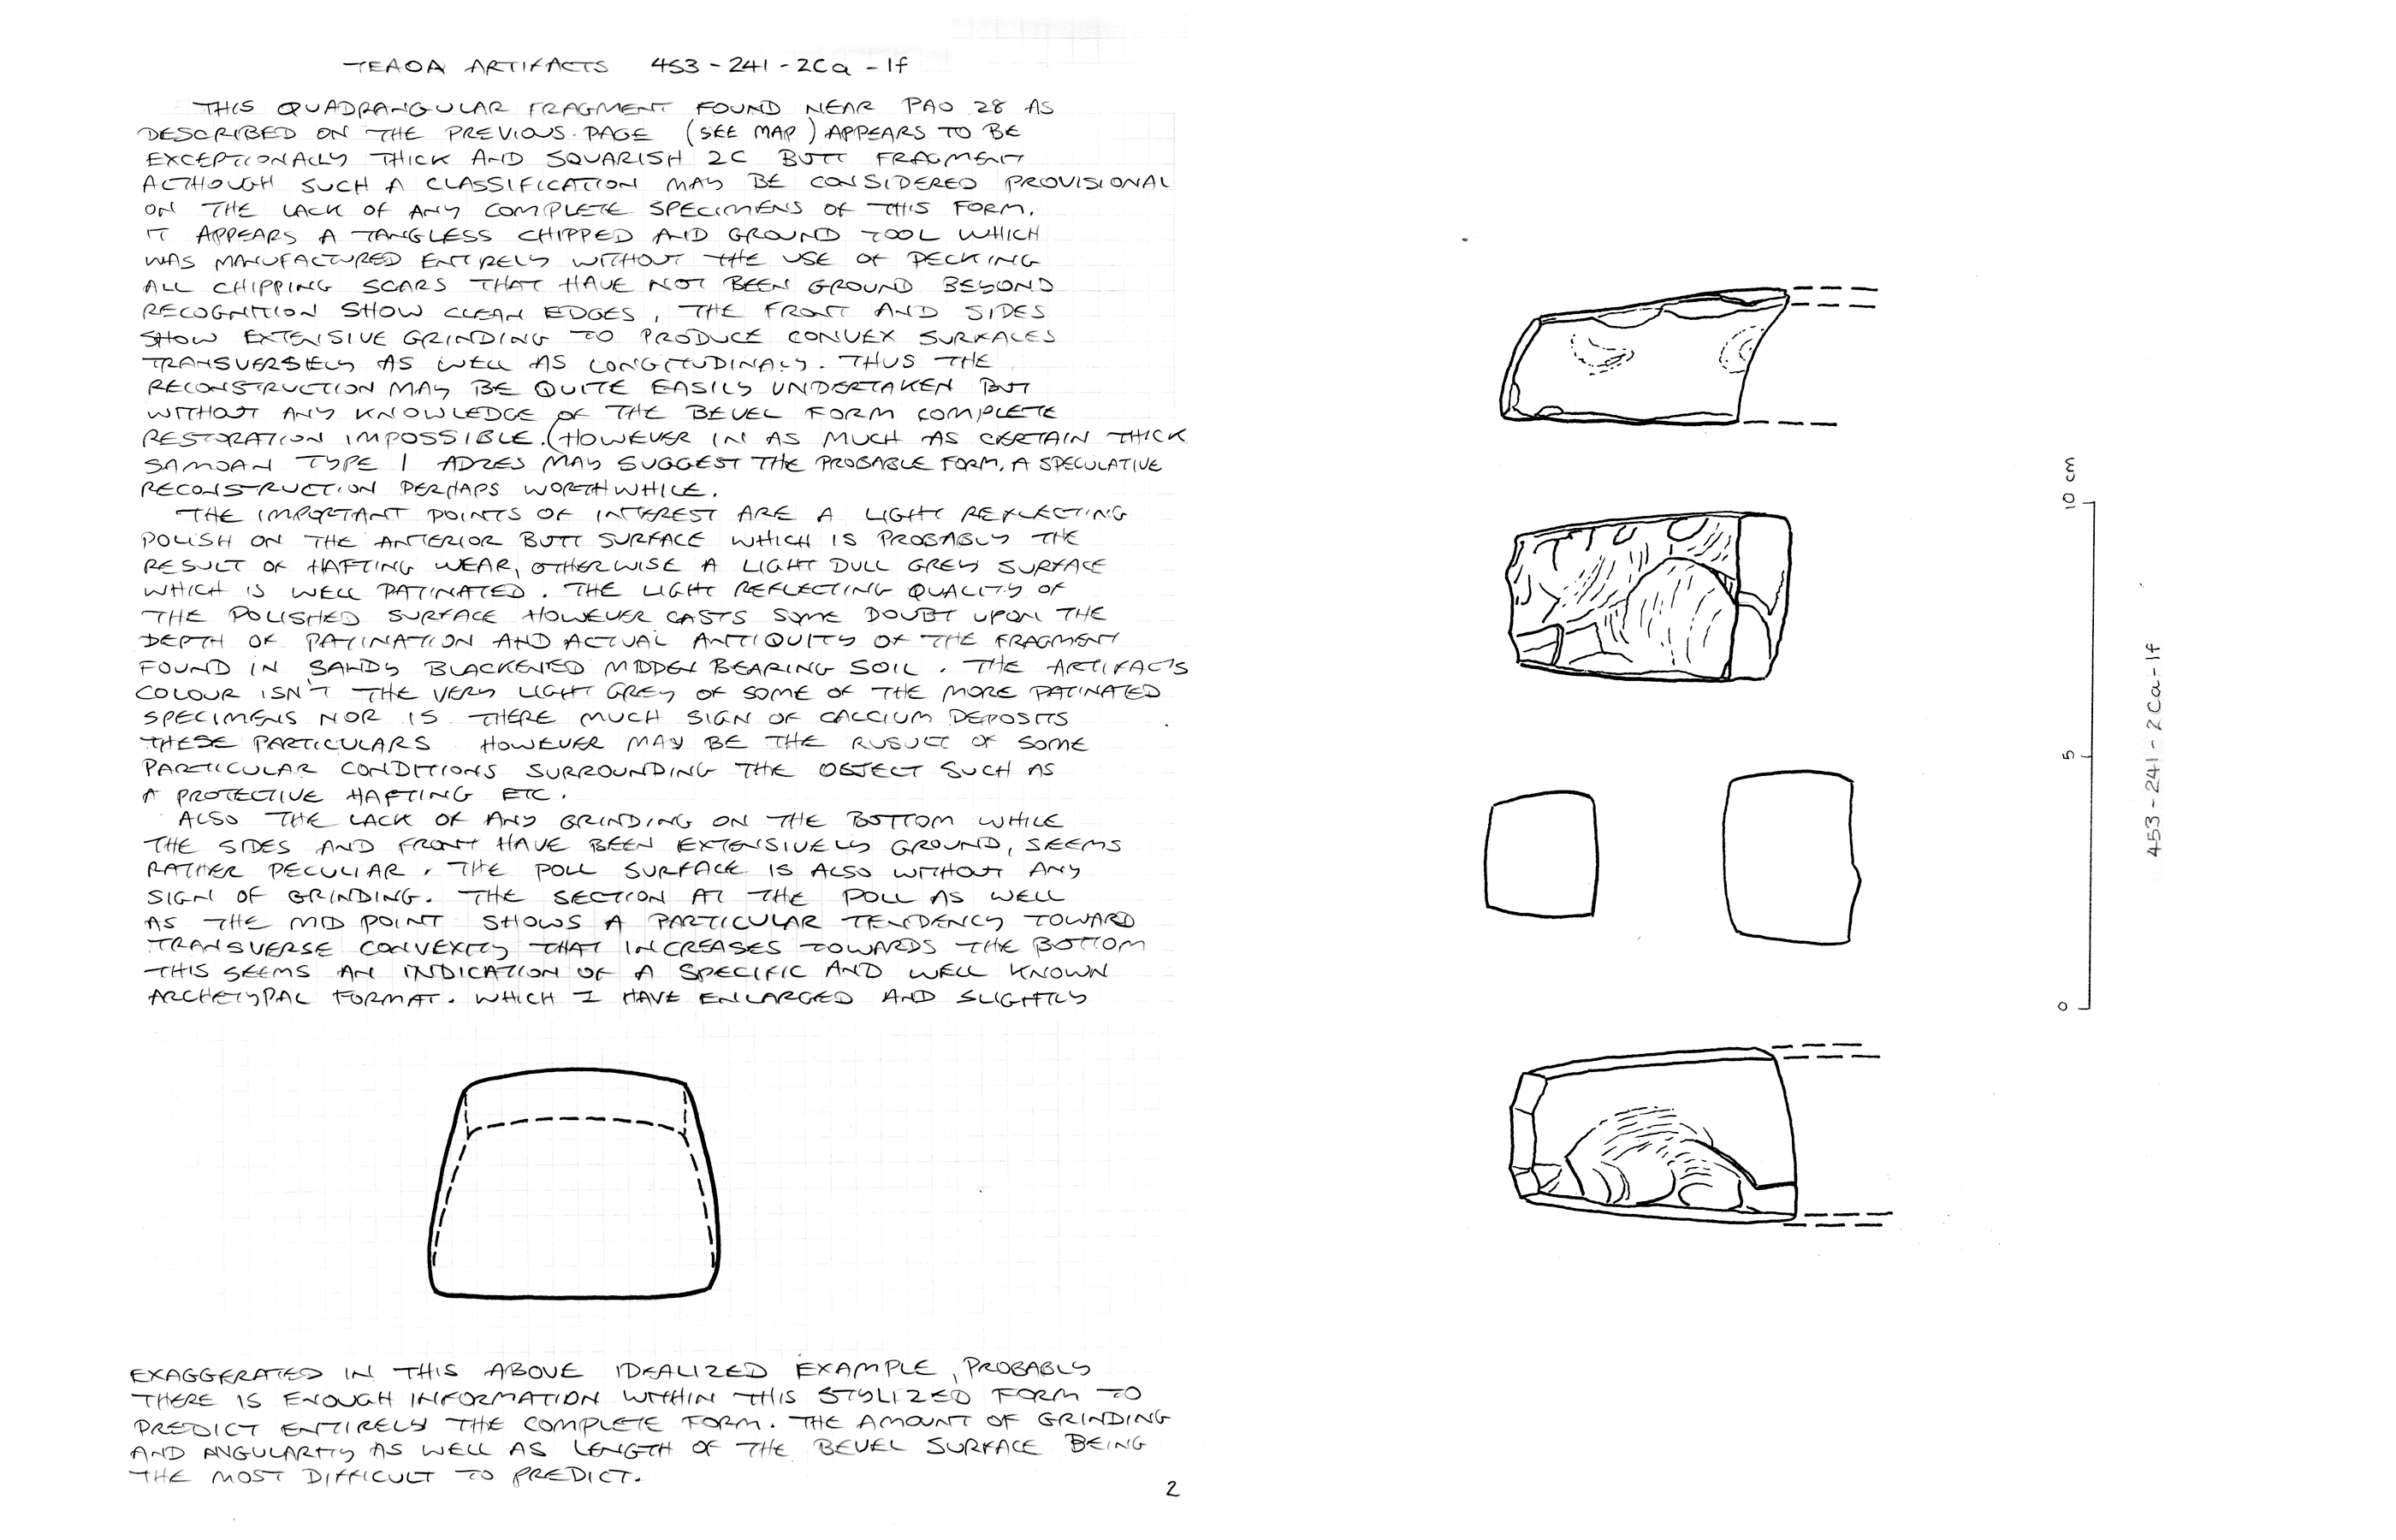 TEAOA ARTIFACTS 453-241-2Ca-1f
THIS QUADRANGULAR FRAGMENT FOUND NEAR PAO 28 AS
DESCRIBED ON THE PREVIOUS PAGE (SEE MAP) APPEARS TO BE
EXCEPTIONALLY THICK AND SQUARISH 2C BUTT FRAGMENT
ALTHOUGH SUCH A CLASSIFICATION MAY BE CONSIDERED PROVISIONAL
ON THE LACK OF ANY COMPLETE SPECIMENS OF THIS FORM.
IT APPEARS A TANGLESS CHIPPED AND GROUND TOOL WHICH
WAS MANUFACTURED ENTIRELY WITHOUT THE USE OF PECKING
ALL CHIPPING SCARS THAT HAVE NOT BEEN GROUND BEYOND
RECOGNITION SHOW CLEAN EDGES, THE FRONT AND SIDES
SHOW EXTENSIVE GRINDING TO PRODUCE CONVEX SURFACES
TRANSVERSIELY AS WELL AS LONGITUDINALY. THUS THE
RECONSTRUCTION MAY BE QUITE EASILY UNDERTAKEN BUT
WITHOUT ANY KNOWLEDGE OF THE BEVEL FORM COMPLETE
RESTORATION IMPOSSIBLE. (HOWEVER IN AS MUCH AS CERTAIN THICK
SAMOAN TYPE I ADZES MAY SUGGEST THE PROBABLE FORM, A SPECULATIVE
RECONSTRUCTION PERHAPS WORTHWHILE.
THE IMPORTANT POINTS OF INTEREST ARE A LIGHT REFLECTING
POLISH ON THE ANTERIOR BUTT SURFACE WHICH IS PROBABLY THE
RESULT OF HAFTING WEAR, OTHERWISE A LIGHT DULL GREY SURFACE
WHICH IS WELL PATINATED. THE LIGHT REFLECTING QUALITY OF
THE POLISHED SURFACE HOWEVER CASTS SOME DOUBT UPON THE
DEPTH OF PATINATION AND ACTUAL ANTIQUITY OF THE FRAGMENT
FOUND IN SANDY BLACKENED MIDDEN BEARING SOIL. THE ARTIFACTS
COLOUR ISN'T THE VERY LIGHT GREY OF SOME OF THE MORE PATINATED
SPECIMENS NOR IS THERE MUCH SIGN OF CALCIUM DEPOSITS
THESE PARTICULARS HOWEVER MAY BE THE RUSULT OF SOME
PARTICULAR CONDITIONS SURROUNDING THE OBJECT SUCH AS
A PROTECTIVE HAFTING ETC.
ALSO THE LACK OF ANY GRINDING ON THE BOTTOM WHILE
THE SIDES AND FRONT HAVE BEEN EXTENSIVELY GROUND, SEEMS
RATHER PECULIAR. THE POLL SURFACE IS ALSO WITHOUT ANY
SIGN OF GRINDING. THE SECTION AT THE POLL AS WELL
AS THE MID POINT SHOWS A PARTICULAR TENDENCY TOWARD
TRANSVERSE CONVEXITY THAT INCREASES TOWARDS THE BOTTOM
THIS SEEMS AN INDICATION OF A SPECIFIC AND WELL KNOWN
ARCHETYPAL FORMAT. WHICH I HAVE ENLARGED AND SLIGHTLY
EXAGGERATED IN THIS ABOVE IDEALIZED EXAMPLE, PROBABLY
THERE IS ENOUGH INFORMATION WITHIN THIS STYLIZED FORM TO
PREDICT ENTIRELY THE COMPLETE FORM. THE AMOUNT OF GRINDING
AND ANGULARITY AS WELL AS LENGTH OF THE BEVEL SURFACE BEING
THE MOST DIFFICULT TO PREDICT.
2
10 cm
5
0
453-241-2Ca-1f